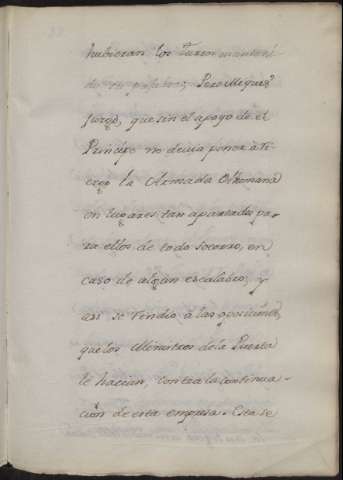 hubieran los Turcos manteni-
do su palabra; Pero Miguez
juzgò, que sin el apoyo de el
Principe no devia poner à ri-
esgo la Armada Othomana
en lugares tan apartados pa-
ra ellos de todo socorro, en
caso de algun escalabro; y
asi se rendio à las oposiciones,
que los Ministros de la Puerta
le hacian, contra la continua-
ción de esta empresa. Esta se